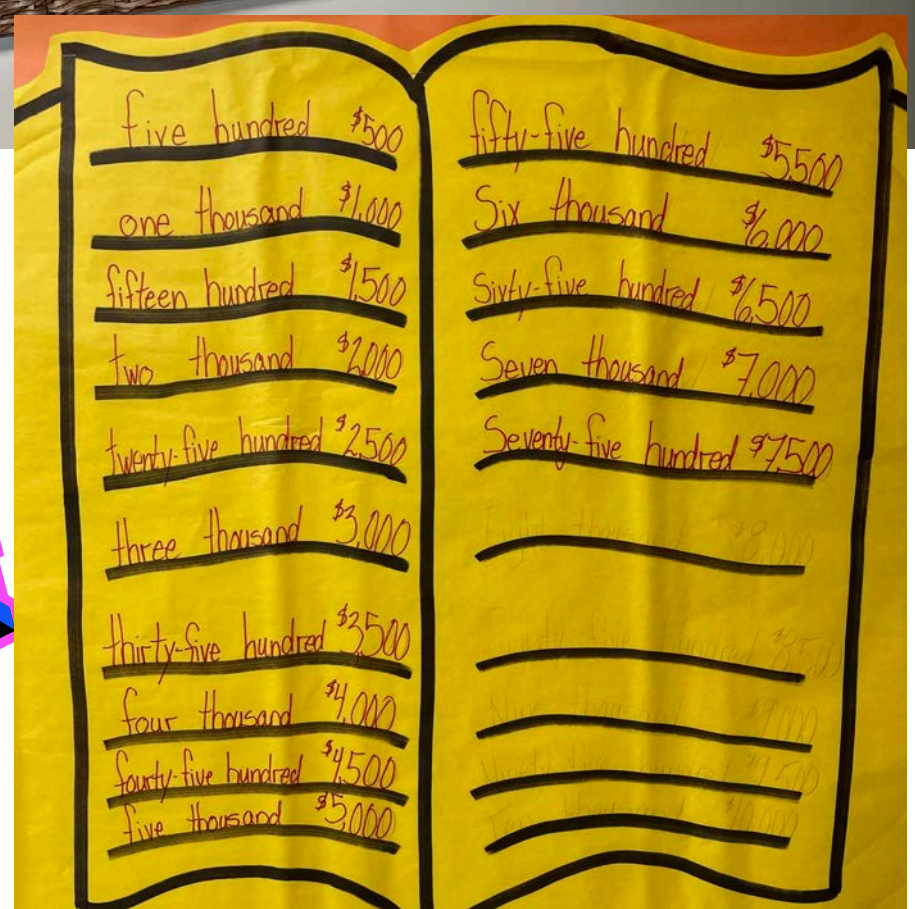 five hundred $500
one thousand $1,000
fifteen hundred $1,500
two thousand $2,000
twenty-five hundred $2,500
three thousand $3,000
thirty-five hundred $3,500
four thousand $4,000
fourty-five hundred $4,500
five thousand $5,000
fifty-five hundred $5,500
Six thousand $6,000
Sixty-five hundred $6,500
Seven thousand $7,000
Seventy-five hundred $7,500
Eight thousand $8,000
five hundred $8,500
Nine thousand $9,000
Ninety-five hundred $9,500
thousand $10,000